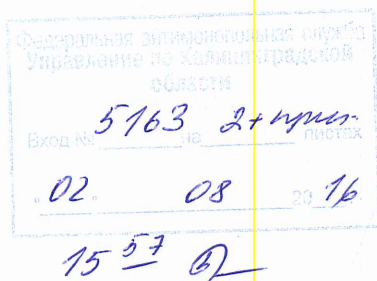 Федеральная антимонопольная служба
Управление по Калининградской
области
Вход № 5163 на 2+прил. листах
"02" 08 2016
15 57